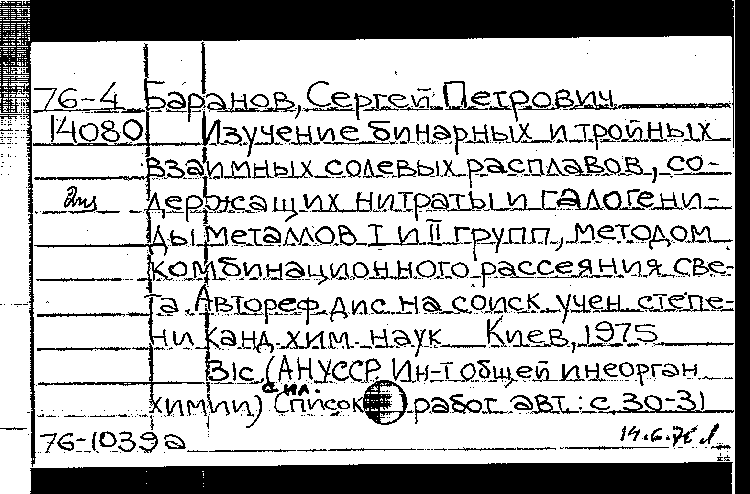 76-4 Баранов, Сергей Петрович
14080 Изучение бинарных и тройных
взаимных солевых расплавов, со-
держащих нитраты и галогени-
ды металлов I и II групп, методом
комбинационного рассеяния све-
та. Автореф. дис. на соиск. учен. степе-
ни канд. хим. наук Киев, 1975
31с. (АН УССР. Ин-т общей и неорган.
с ил.
химии) Список работ авт.: с. 30-31
76-1039а